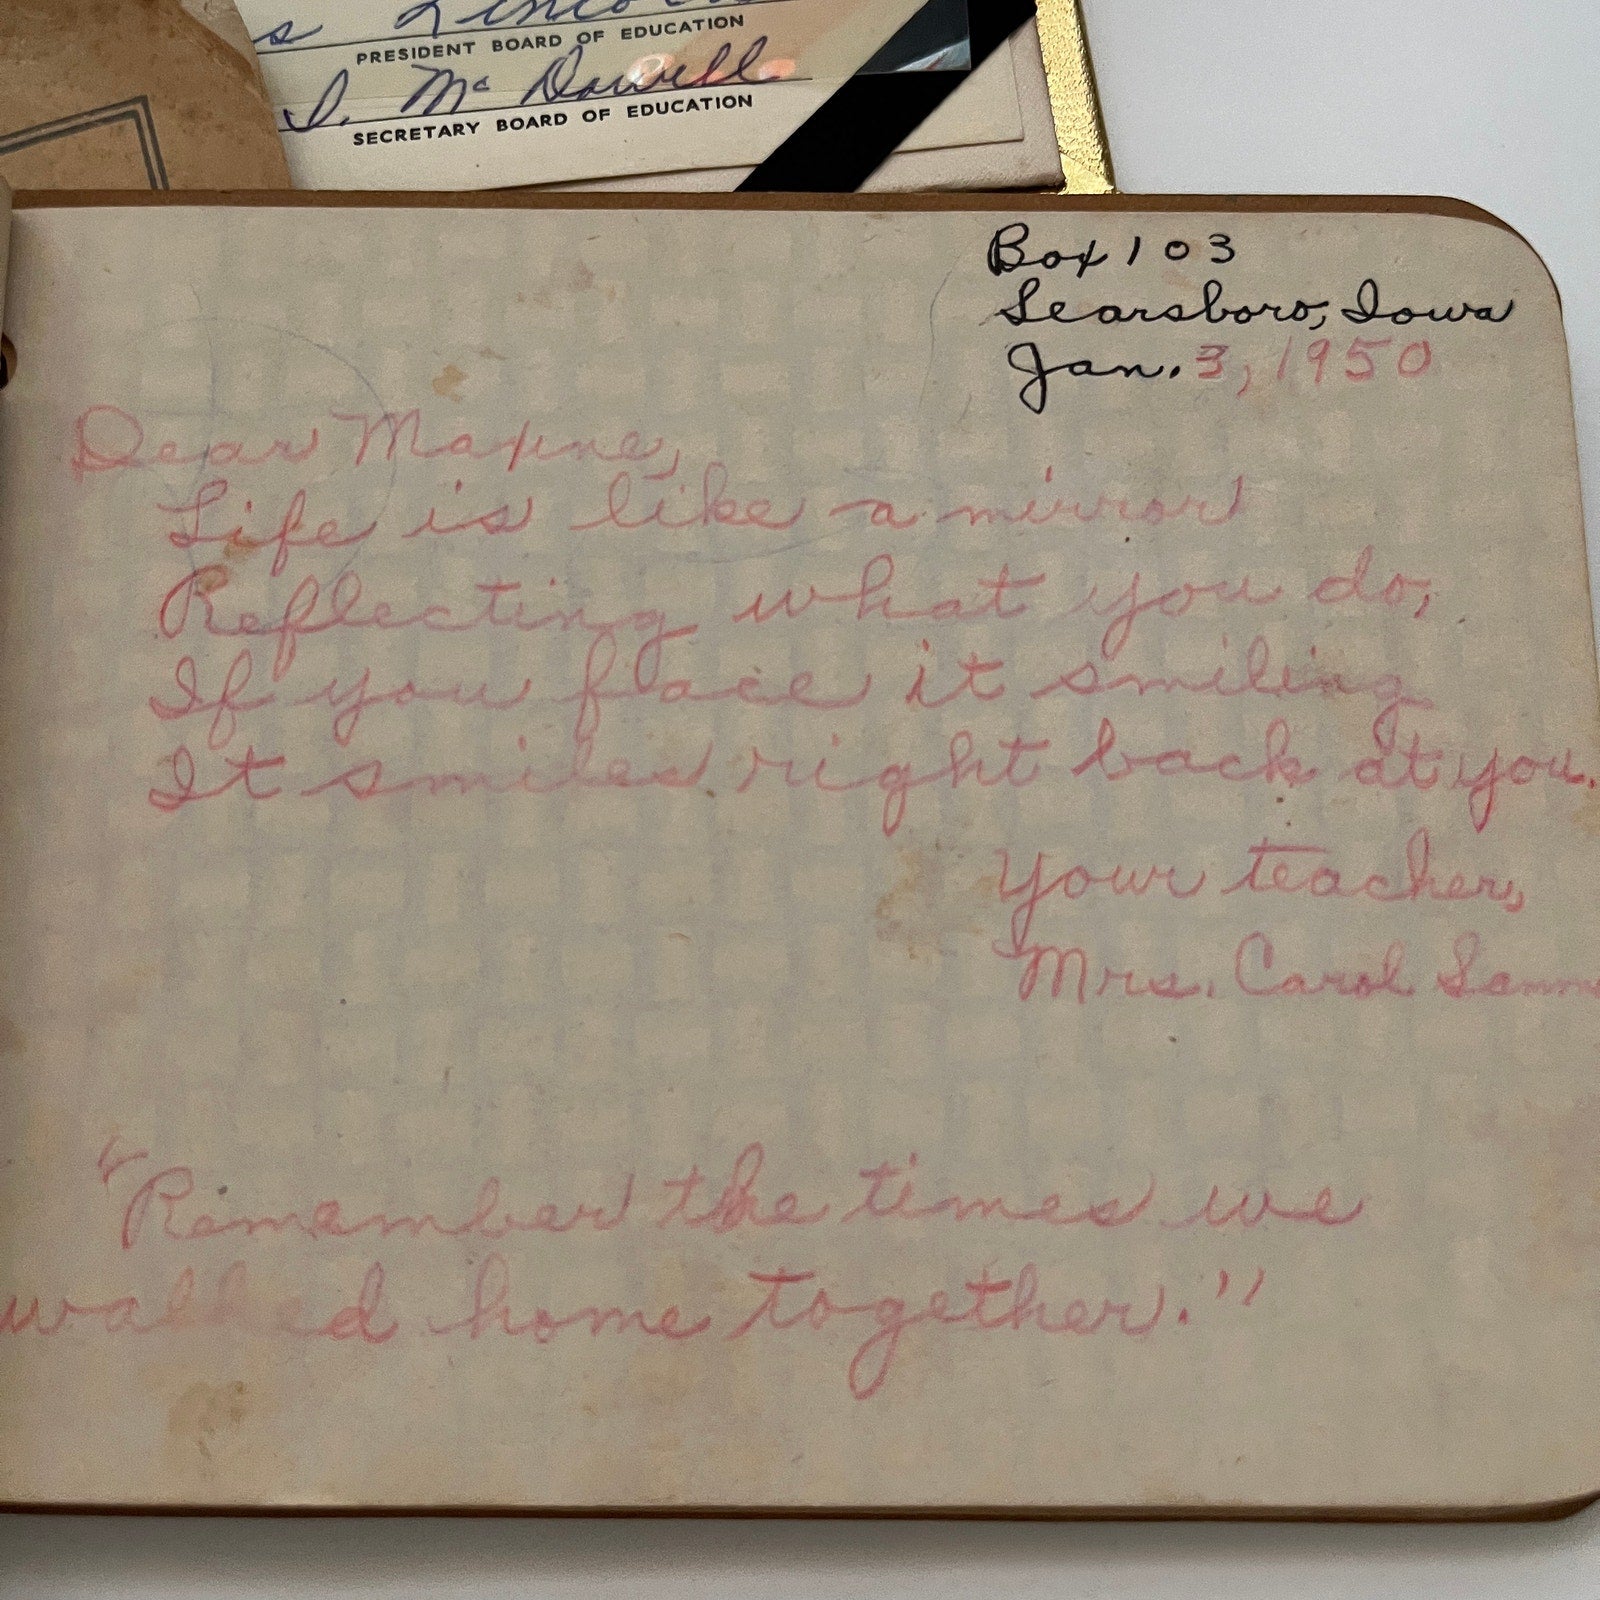 PRESIDENT BOARD OF EDUCATION
J. Mc Dowell
SECRETARY BOARD OF EDUCATION
Box 103
Searsboro, Iowa
Jan. 3, 1950
Dear Maxine,
Life is like a mirror
Reflecting what you do,
If you face it smiling
It smiles right back at you.
Your teacher,
Mrs. Carol
"Remember the times we
walked home together."